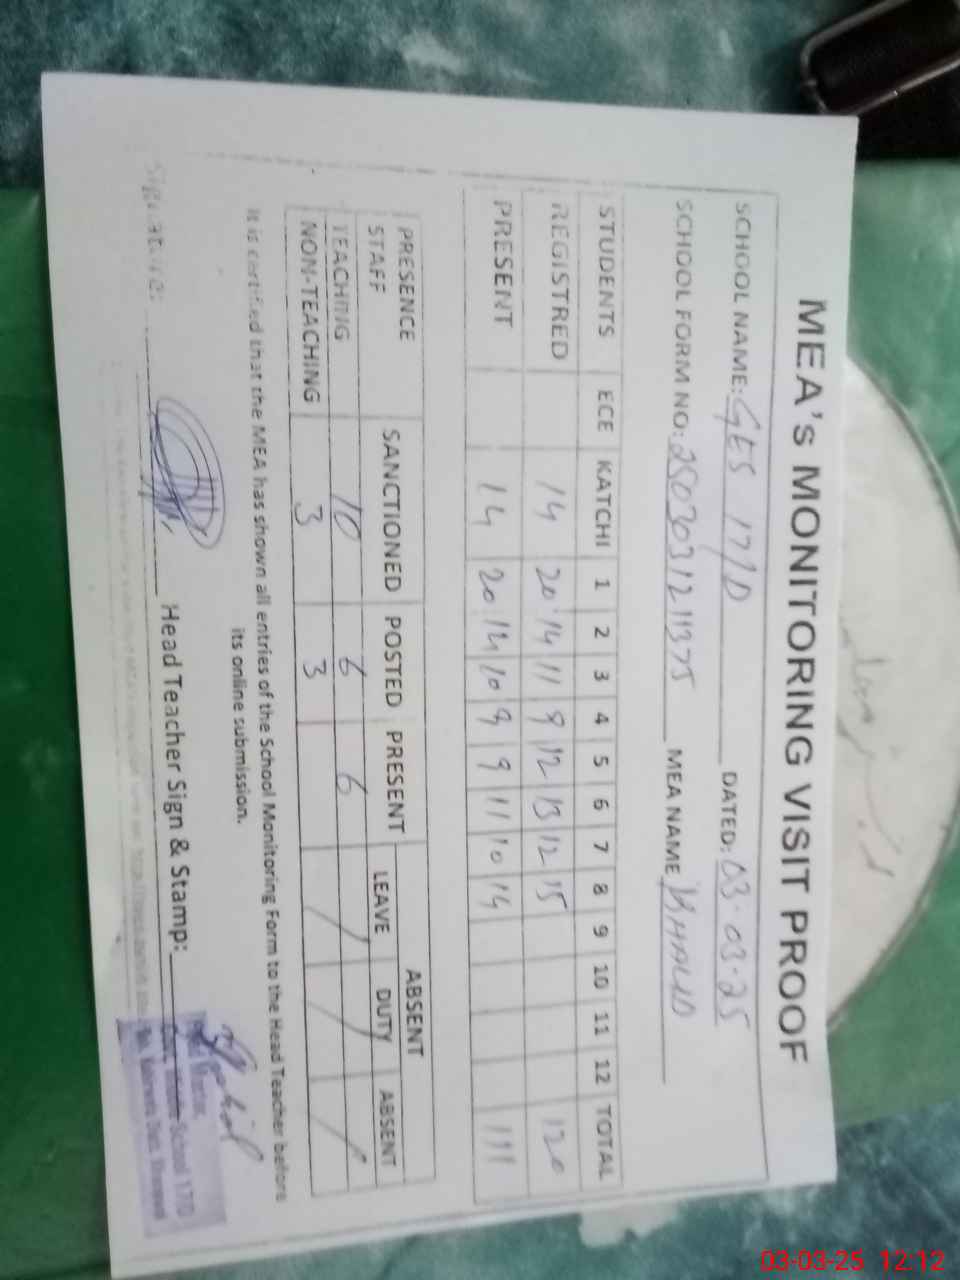 MEA's MONITORING VISIT PROOF
SCHOOL NAME: GES 17/D DATED: 03-03-25
SCHOOL FORM NO: 25030312 11375 MEA NAME KHALID
STUDENTS ECE KATCHI 1 2 3 4 5 6 7 8 9 10 11 12 TOTAL
REGISTRED 14 20 14 11 9 12 13 12 15 120
PRESENT 14 20 14 10 9 9 11 10 14 111
PRESENCE STAFF SANCTIONED POSTED PRESENT ABSENT
LEAVE DUTY ABSENT
TEACHING 10 6 6 / / /
NON-TEACHING 3 3
It is certified that the MEA has shown all entries of the School Monitoring Form to the Head Teacher before
its online submission.
Signature: Head Teacher Sign & Stamp:
Head Master,
School 17/D
03-03-25 12:12